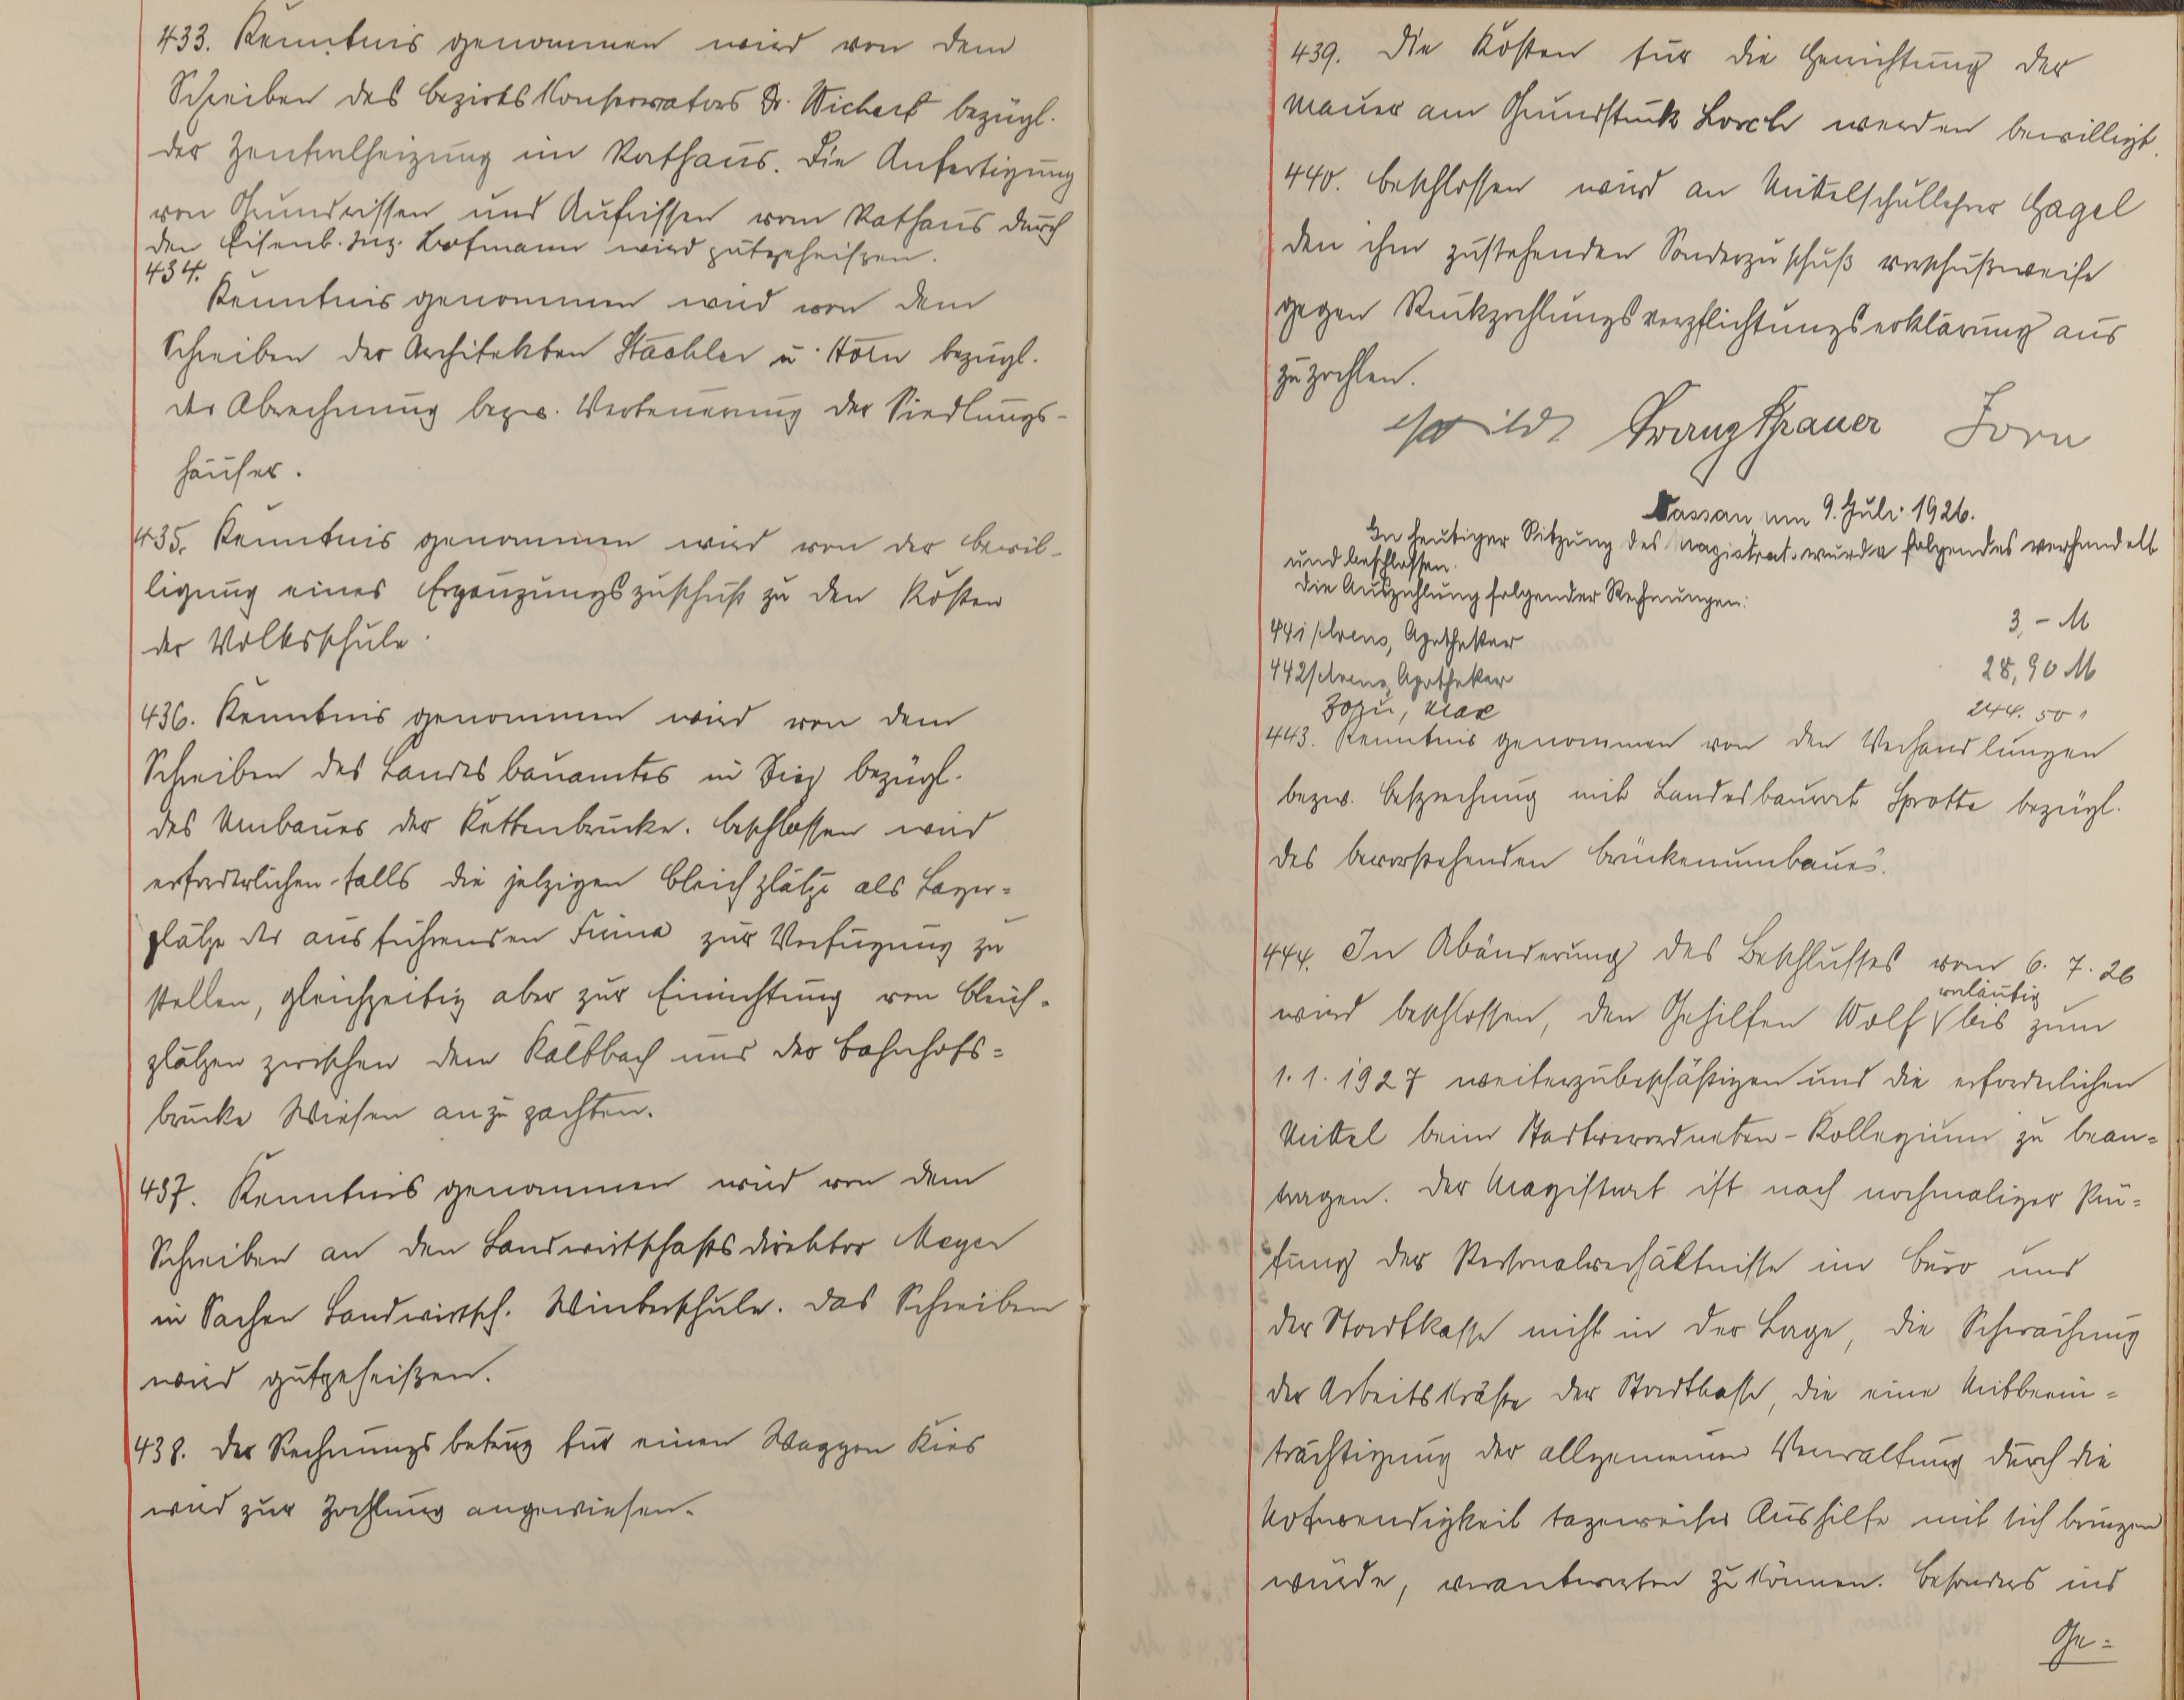 433. Kenntnis genommen wird von dem
Schreiben des Bezirkskonservators Dr. Wichert bezügl.
der Zentralheizung im Rathaus. Die Anfertigung
von Grundrissen und Aufrissen vom Rathaus durch
den Eisenb. Ing. Hofmann wird gutgeheißen.
434.
Kenntnis genommen wird von dem
Schreiben der Architekten Staehler u. Horn bezügl.
der Abrechnung bezw. Verteuerung der Siedlungs-
häuser.
435. Kenntnis genommen wird von der Bewil-
ligung eines Ergänzungszuschuß zu den Kosten
der Volksschule.
436. Kenntnis genommen wird von dem
Schreiben des Landesbauamtes in Diez bezügl.
des Umbaues der Kettenbrücke. Beschlossen wird
erforderlichen-falls die jetzigen Bleichplätze als Lager=
plätze der ausführenden Firma zur Verfügung zu
stellen, gleichzeitig aber zur Einrichtung von Bleich=
plätzen zwischen dem Kaltbach und der Bahnhofs=
brücke Wiesen anzupachten.
437. Kenntnis genommen wird von dem
Schreiben an den Landwirtschaftsdirektor Meyer
in Sachen Landwirtsch. Winterschule. Das Schreiben
wird gutgeheißen.
438. Der Rechnungsbetrag für einen Waggon Kies
wird zur Zahlung angewiesen.
439. Die Kosten für die Herrichtung der
Mauer am Grundstück Lorch werden bewilligt.
440. Beschlossen wird an Mittelschullehrer Hagel
den ihm zustehenden Sonderzuschuß vorschußweise
gegen Rückzahlungsverpflichtungserklärung aus
zuzahlen.
Franz Thauer Jorn
Nassau, am 9. Juli 1926.
In heutiger Sitzung des Magistrats wurde folgendes verhandelt
und beschlossen.
Die Auszahlung folgender Rechnungen:
441/ Apotheker 3,- M
442/ Apotheker 28,90 M
Max 244.50 "
443. Kenntnis genommen von den Verhandlungen
bezw. Besprechung mit Landesbaurat Sprotte bezügl.
des bevorstehenden Brückenumbaues.
444. In Abänderung des Beschlusses vom 6. 7. 26
vorläufig
wird beschlossen, den Gehilfen Wolf bis zum
1. 1. 1927 weiterzubeschäftigen und die erforderlichen
Mittel beim Stadtverordneten-Kollegium zu bean=
tragen. Der Magistrat ist nach nochmaliger Prü=
fung der Personalverhältnisse im Büro und
der Stadtkasse nicht in der Lage, die Schwächung
der Arbeitskräfte der Stadtkasse, die eine Mitbeein=
trächtigung der allgemeinen Verwaltung durch die
Notwendigkeit tageweiser Aushilfe mit sich bringen
würde, verantworten zu können. Besonders ins
Ge=